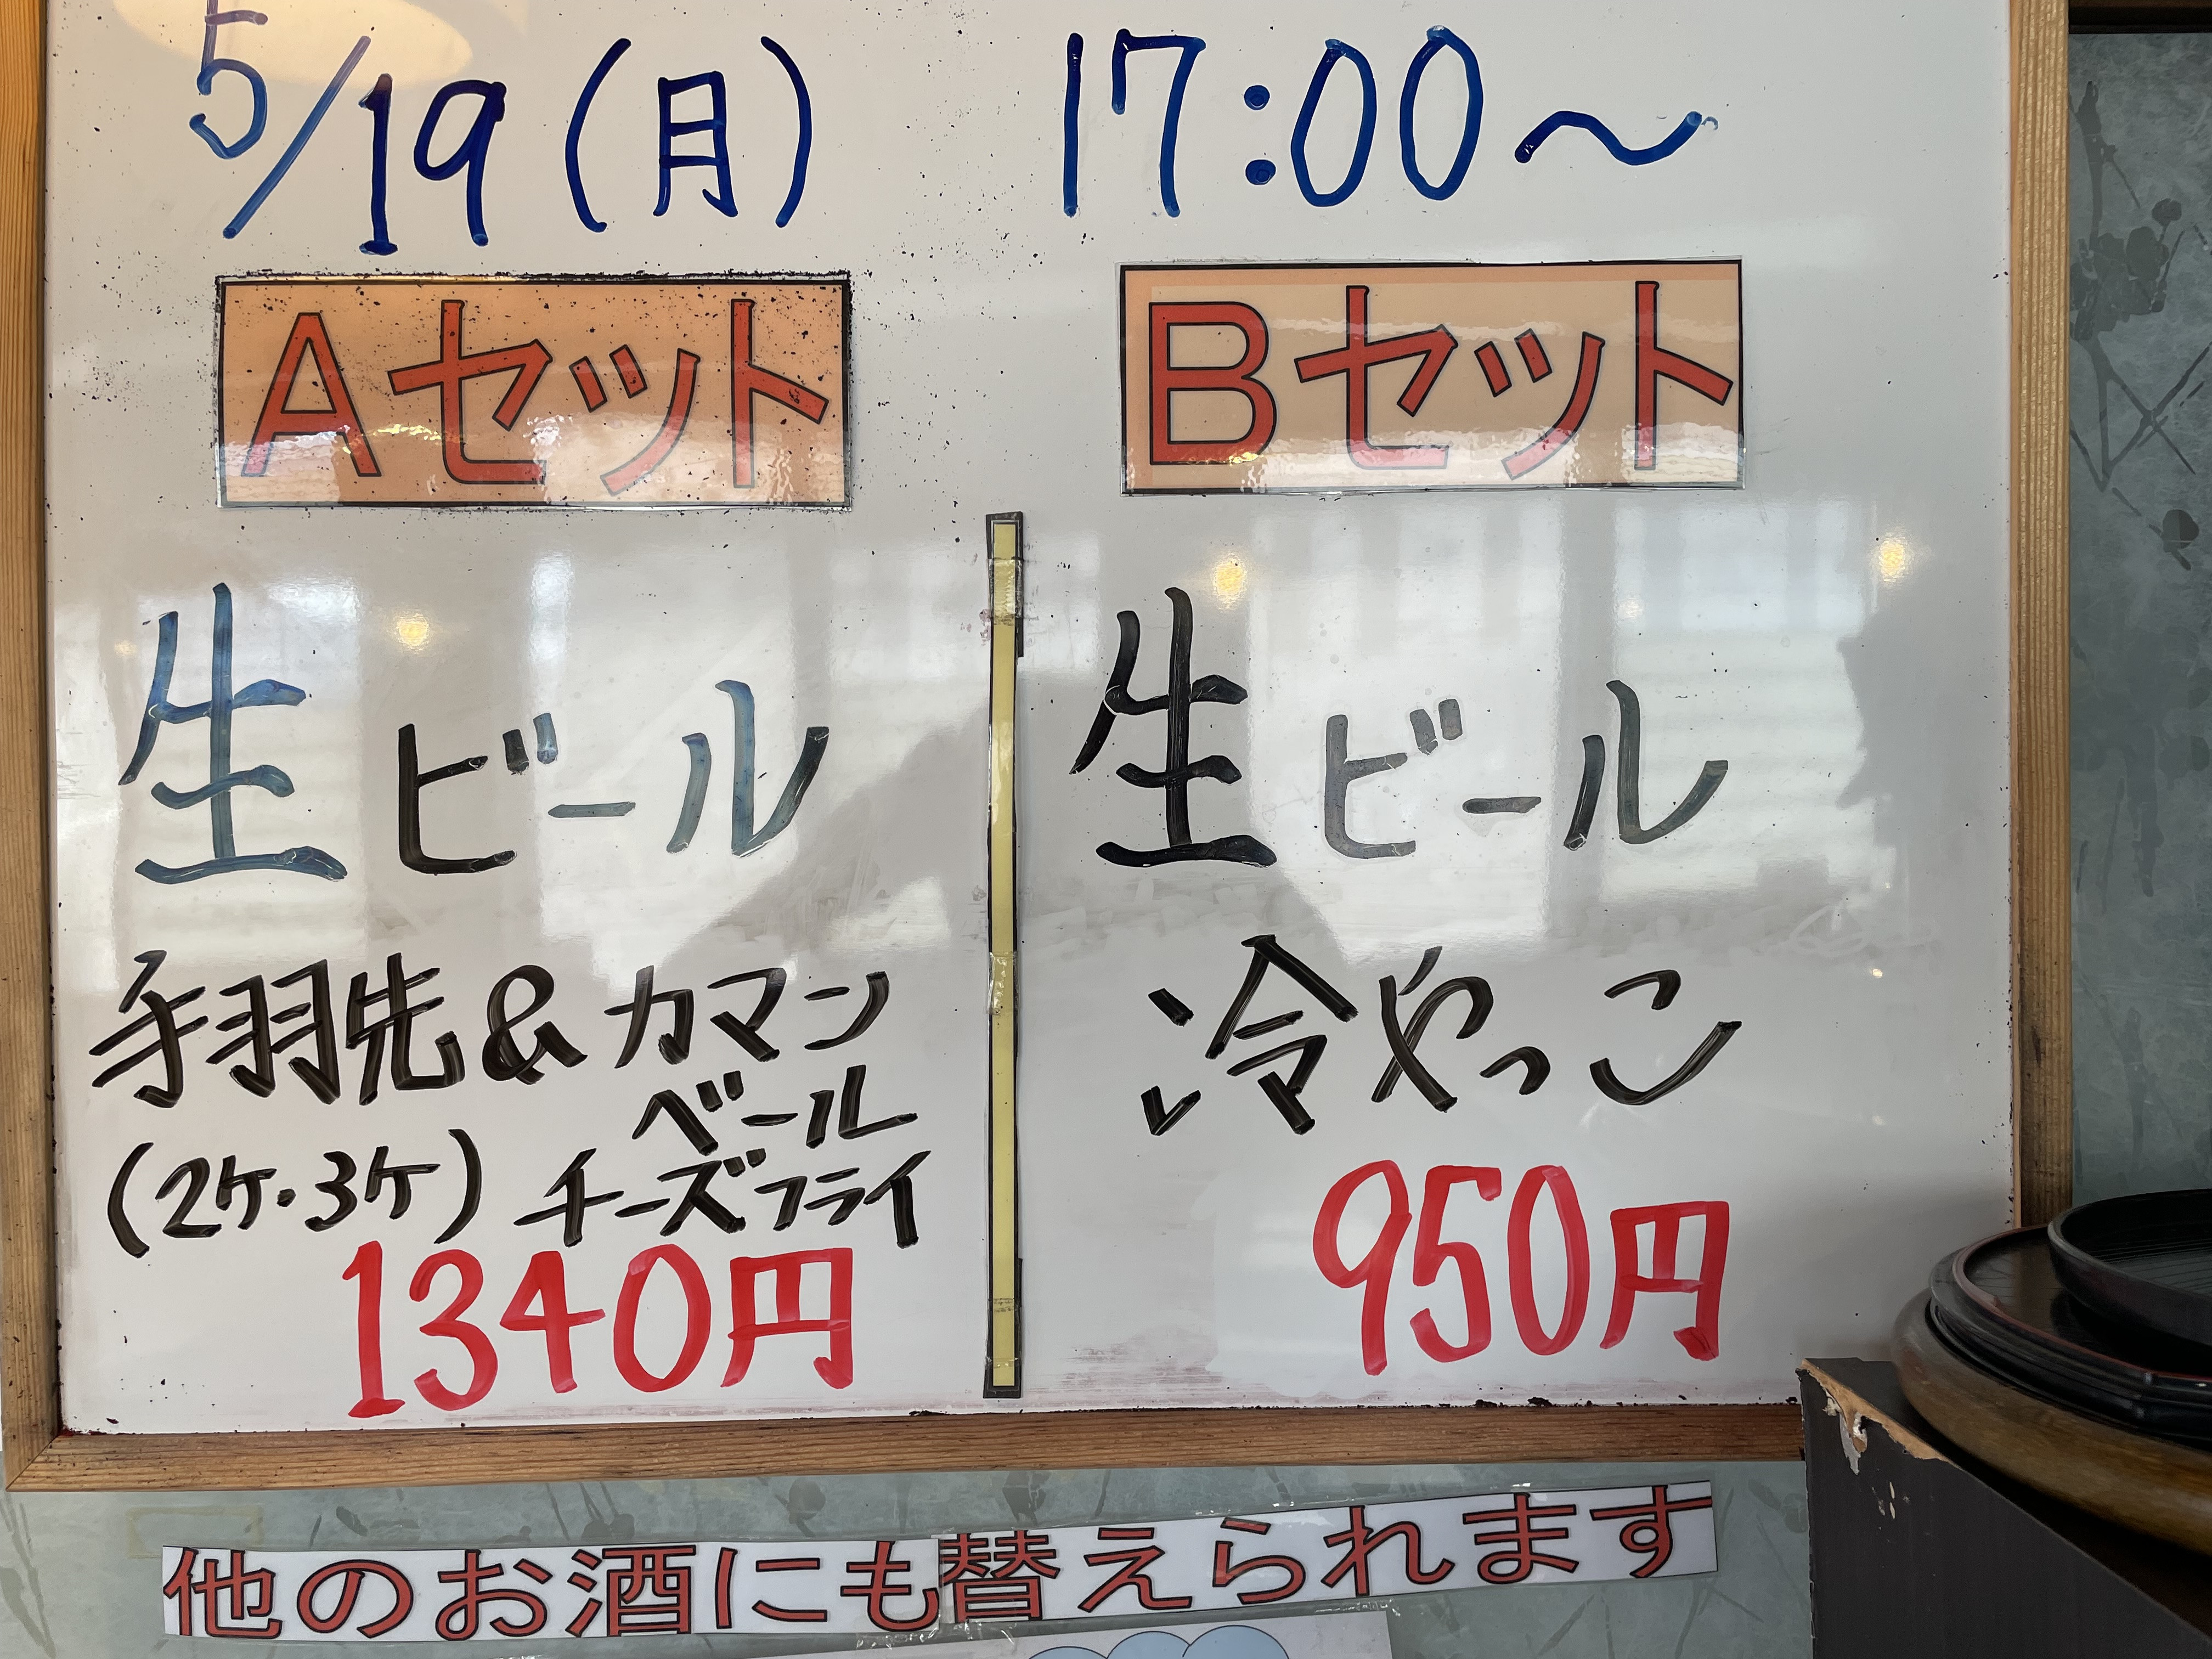 5/19(月) 17:00〜
Aセット
Bセット
生ビール
手羽先&カマン
ベール
(2ケ・3ケ) チーズフライ
1340円
生ビール
冷やっこ
950円
他のお酒にも替えられます